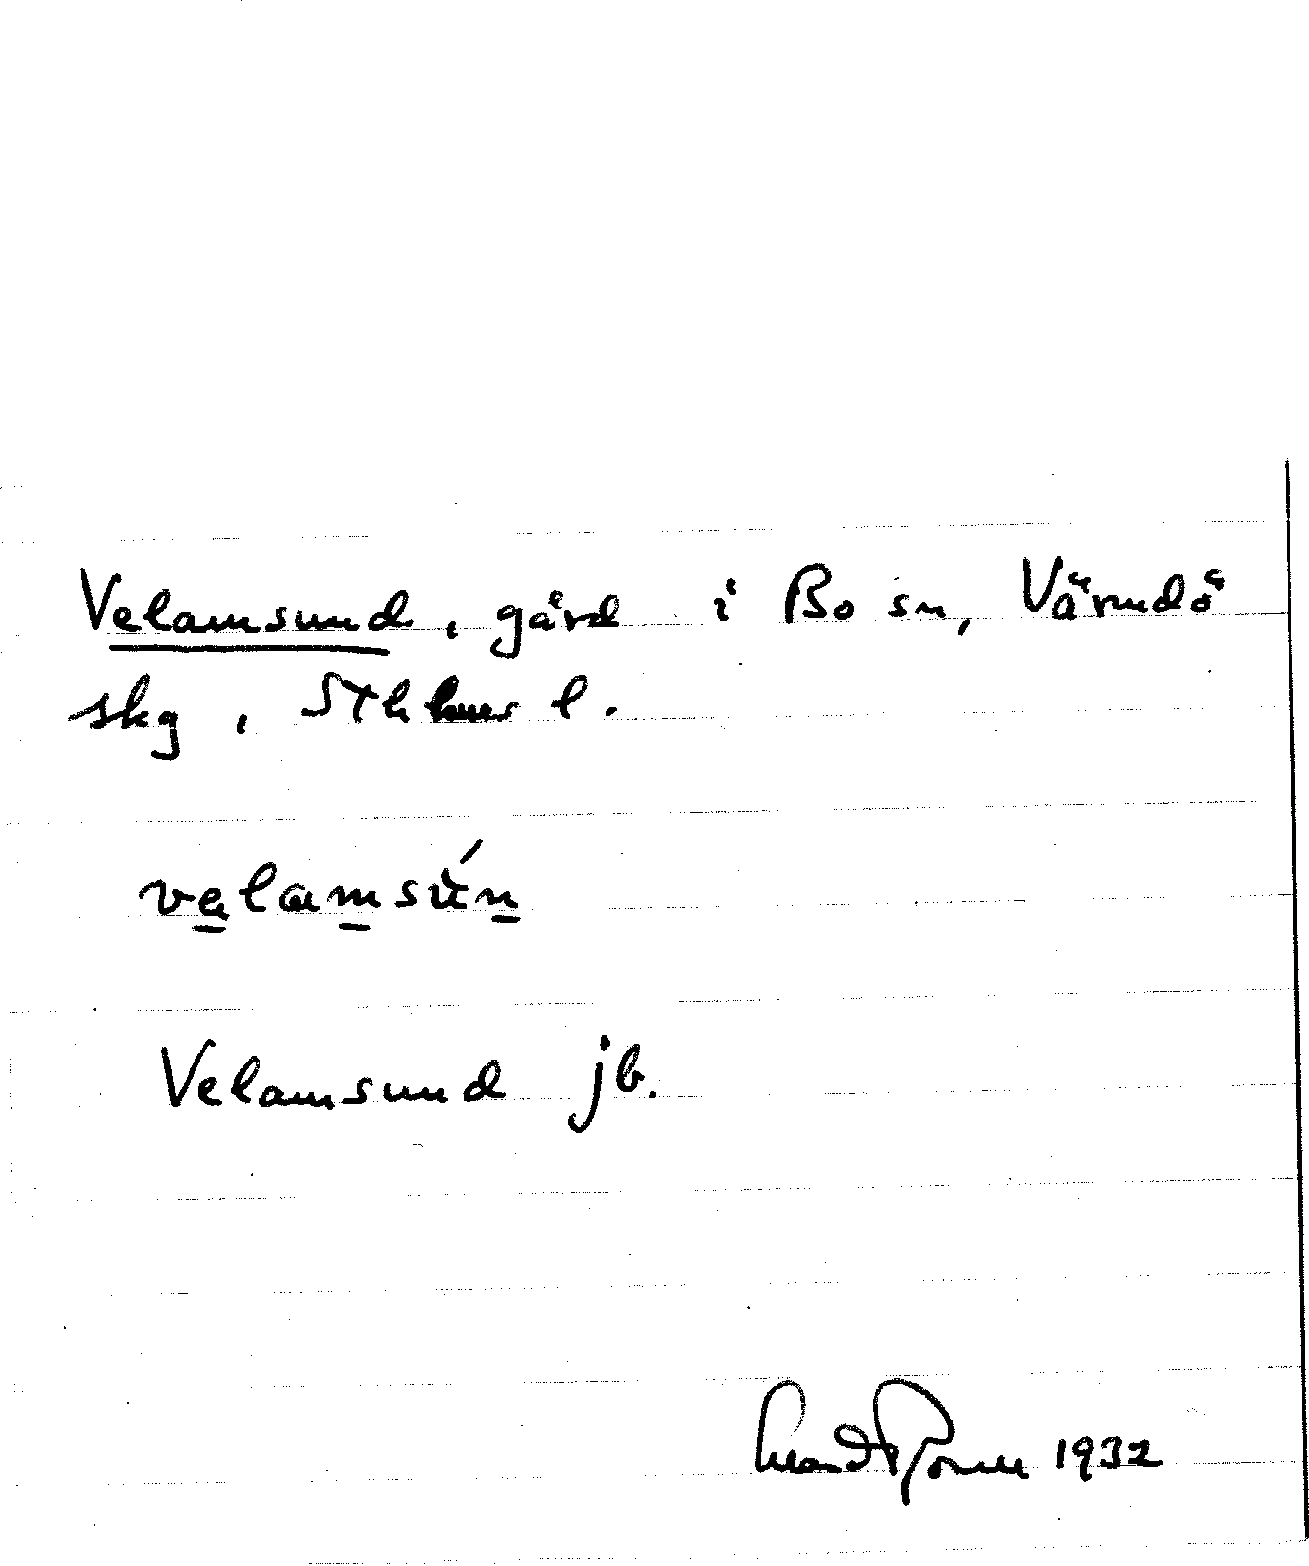 Velamsund, gård i Bo sn, Värmdö
skg, Sthlms l.
velamsún
Velamsund jb.
1932